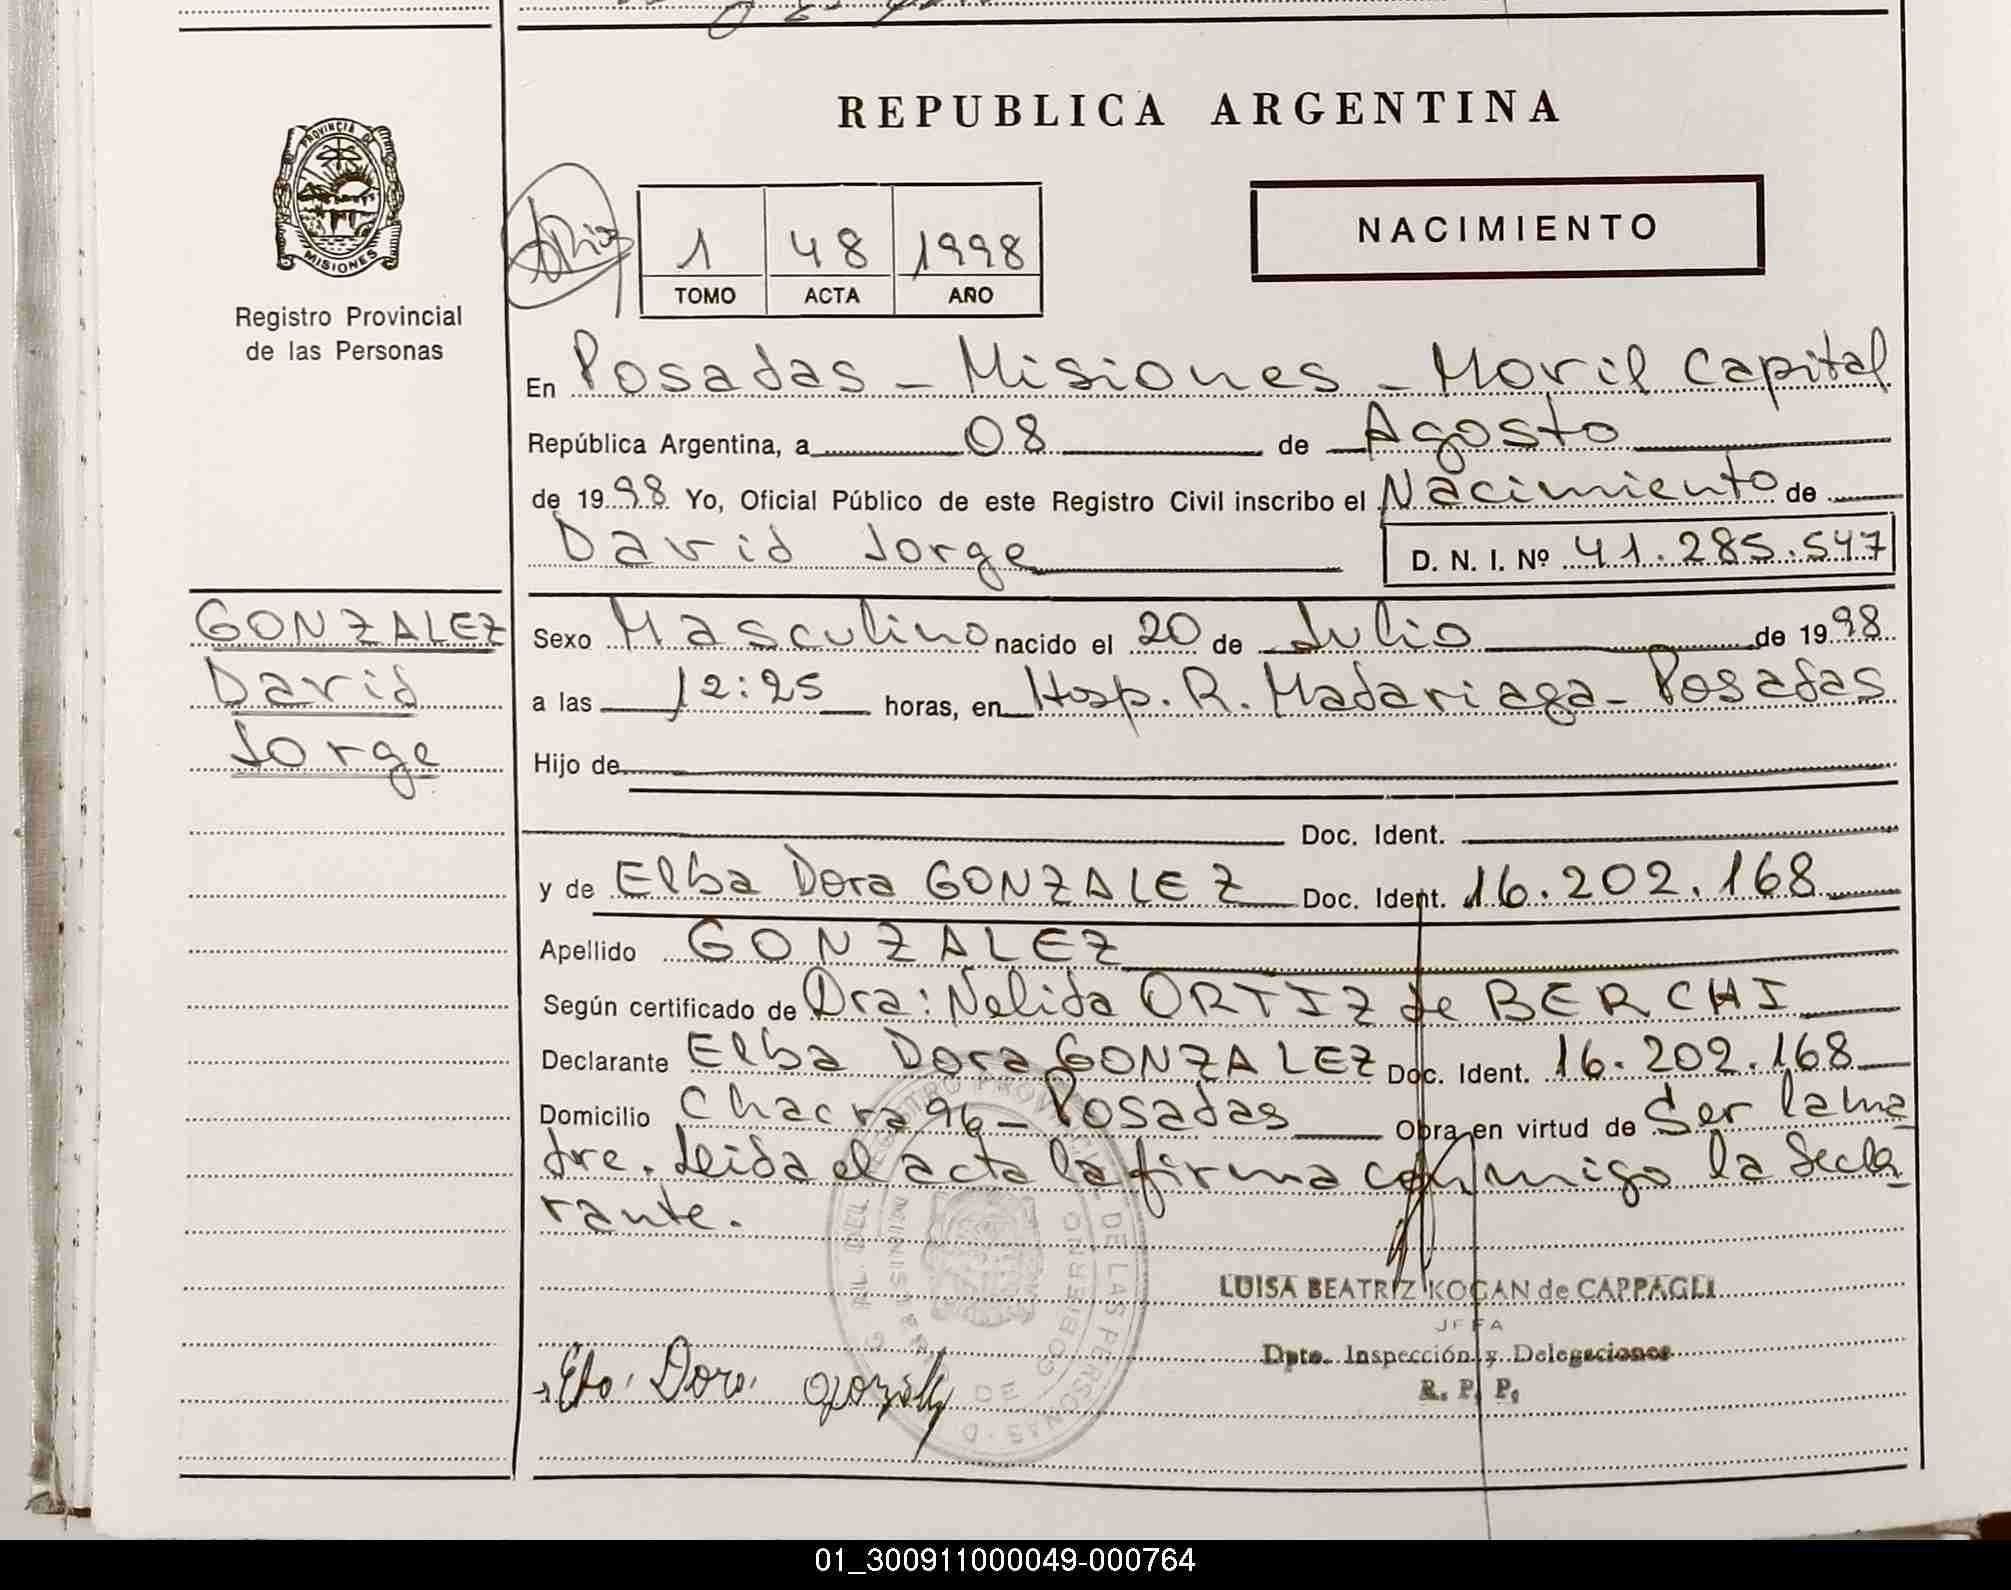 REPUBLICA ARGENTINA
PROVINCIA D
MISIONES
Registro Provincial
de las Personas
1 48 1998
TOMO ACTA AÑO
NACIMIENTO
En Posadas - Misiones - Movil Capital
República Argentina, a 08 de Agosto
de 1998 Yo, Oficial Público de este Registro Civil inscribo el Nacimiento de
David Jorge D. N. I. Nº 41.285.547
GONZALEZ
David
Jorge
Sexo Masculino nacido el 20 de Julio de 1998
a las 12:25 horas, en Hosp. R. Madariaga - Posadas
Hijo de
Doc. Ident.
y de Elba Dora GONZALEZ Doc. Ident. 16.202.168
Apellido GONZALEZ
Según certificado de Dra: Nelida ORTIZ de BERCHI
Declarante Elba Dora GONZALEZ Doc. Ident. 16.202.168
Domicilio Chacra 96 - Posadas Obra en virtud de Ser la ma
dre. Leida el acta la firma conmigo la decla
rante.
LUISA BEATRIZ KOGAN de CAPPAGLI
JEFA
Dpto. Inspección y Delegaciones
R. P. P.
Dora
01_300911000049-000764